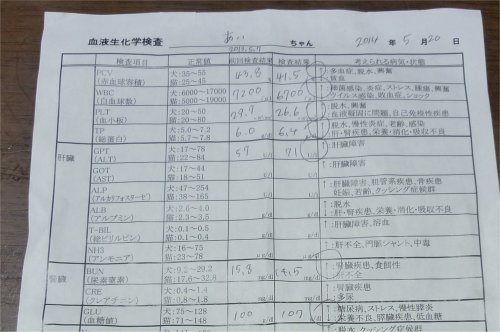 血液生化学検査 あい ちゃん 2014 年 5 月 20 日
2013.6.7
検査項目 正常値 前回検査結果 検査結果 考えられる病気・状態
PCV (赤血球容積) 犬:35~55 猫:25~45 43.8 41.5 ↑:多血症、脱水、興奮 ↓:貧血
WBC (白血球数) 犬:6000~17000 猫:5000~19000 7200 6700 ↑:細菌感染、炎症、ストレス、腫瘍、興奮 ↓:ウイルス感染、敗血症、ショック
PLT (血小板) 犬:20~50 猫:30~70 29.7 26.6 ↑:脱水、興奮 ↓:血液凝固に問題、自己免疫性疾患
TP (総蛋白) 犬:5.0~7.2 猫:5.7~7.8 6.0 6.4 g/dl ↑:脱水、慢性炎症、老齢、感染 ↓:肝・腎疾患、栄養・消化・吸収不良
肝臓 GPT (ALT) 犬:17~78 猫:22~84 57 71 U/l ↑:肝臓障害
GOT (AST) 犬:17~44 猫:18~51 U/l ↑:肝臓障害
ALP (アルカリフォスターゼ) 犬:47~254 猫:38~165 U/l ↑:肝臓障害、胆管系疾患、骨疾患 妊娠、若齢、クッシング症候群
ALB (アルブミン) 犬:2.6~4.0 猫:2.3~3.5 g/dl ↑:脱水 ↓:肝・腎疾患、栄養・消化・吸収不良
T-BIL (総ビリルビン) 犬:0.1~0.5 猫:0.1~0.4 ↑:肝臓障害、溶血
NH3 (アンモニア) 犬:16~75 猫:23~78 ↑:肝不全、門脈シャント、中毒
腎臓 BUN (尿素窒素) 犬:9.2~29.2 猫:17.6~32.8 15.8 14.5 mg/dl ↑:腎臓疾患、食餌性 ↓:肝不全
CRE (クレアチニン) 犬:0.4~1.4 猫:0.8~1.8 mg/dl ↑:腎疾患 ↓:多尿
GLU (血糖値) 犬:75~128 猫:71~148 100 107 ↑:糖尿病、ストレス、慢性膵炎 ↓:栄養不良、膵臓疾患、低血糖